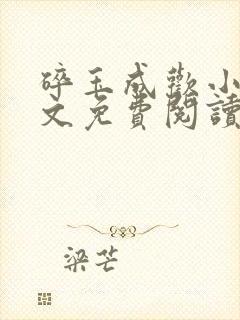 碎玉成歡小
文免費閱讀
梁芒